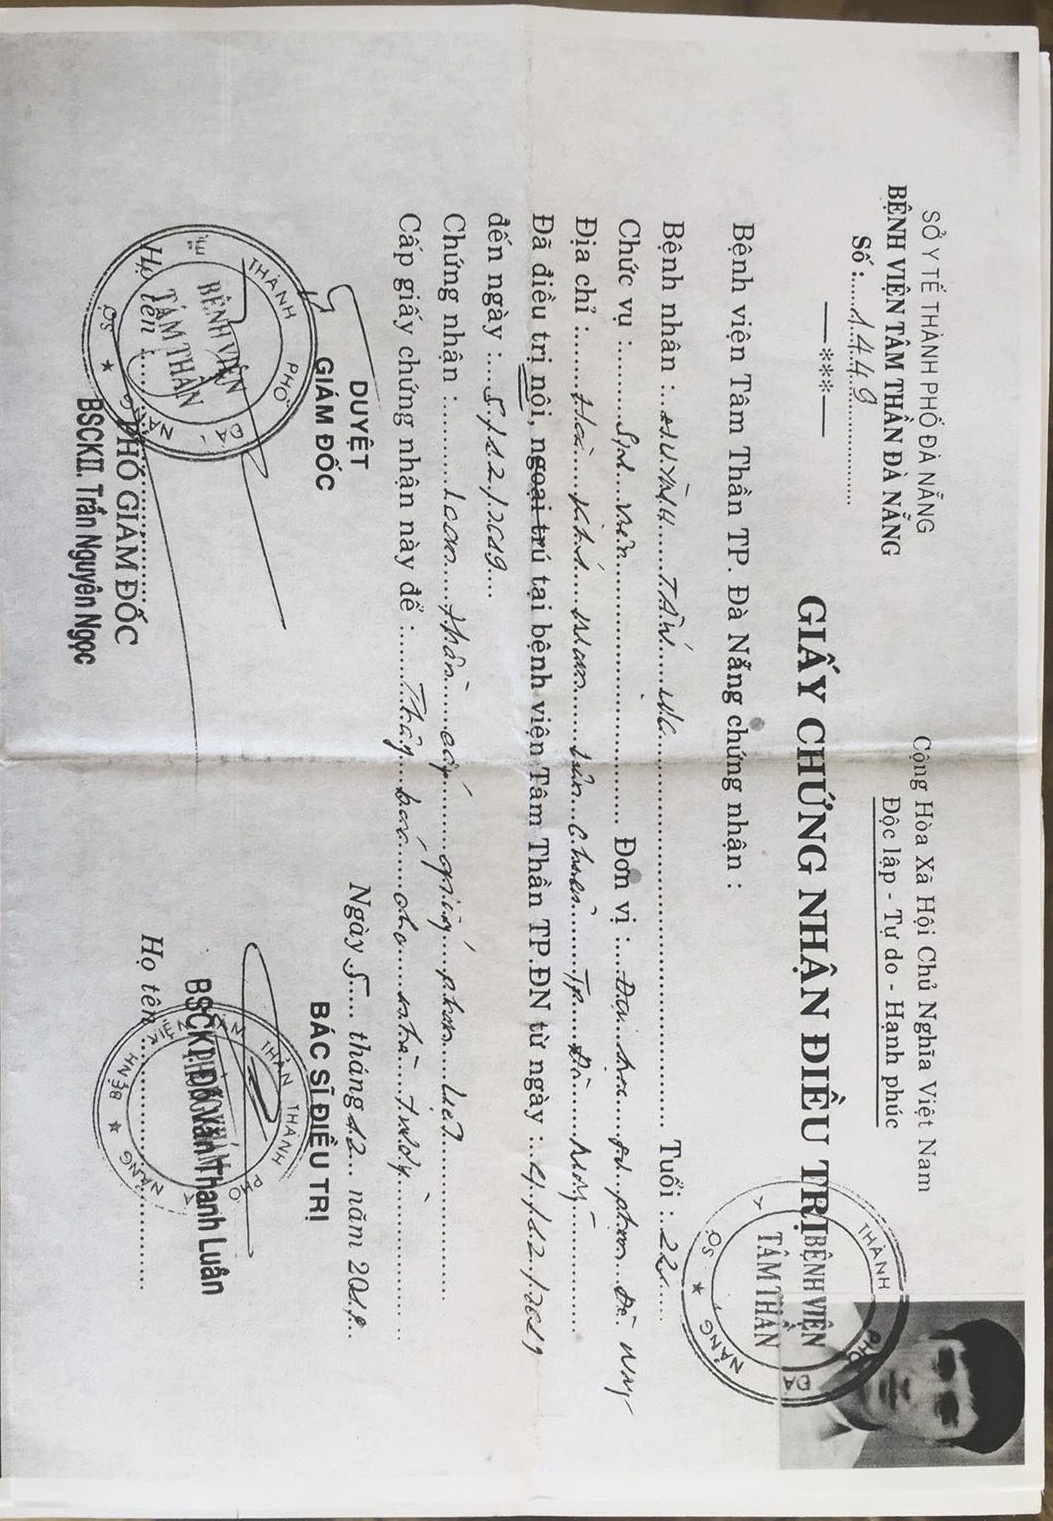 SỞ Y TẾ THÀNH PHỐ ĐÀ NẴNG
BỆNH VIỆN TÂM THẦN ĐÀ NẴNG
Số :.....1449
—***—
Cộng Hòa Xã Hội Chủ Nghĩa Việt Nam
Độc lập - Tự do - Hạnh phúc
GIẤY CHỨNG NHẬN ĐIỀU TRỊ
SỞ Y THÀNH PHỐ ĐÀ NẴNG
BỆNH VIỆN
TÂM THẦN
Bệnh viện Tâm Thần TP. Đà Nẵng chứng nhận :
Bệnh nhân : HUỲNH TẤN Tuổi : 22
Chức vụ : Sinh viên Đơn vị : Đại học sư phạm Đà Nẵng
Địa chỉ : Hoà Khánh Nam Liên Chiểu TP Đà Nẵng
Đã điều trị nội, ngoại trú tại bệnh viện Tâm Thần TP.ĐN từ ngày : 4/12/2019
đến ngày : 5/12/2019
Chứng nhận : Loạn thần cấp giống phân liệt
Cấp giấy chứng nhận này để : Thông báo cho nhà trường
Ngày 5 tháng 12 năm 2019
DUYỆT
GIÁM ĐỐC
SỞ Y TẾ THÀNH PHỐ ĐÀ NẴNG
BỆNH VIỆN
TÂM THẦN
Họ tên :
PHÓ GIÁM ĐỐC
BSCKII. Trần Nguyên Ngọc
BÁC SĨ ĐIỀU TRỊ
BỆNH VIỆN TÂM THẦN THÀNH PHỐ ĐÀ NẴNG
PHÒNG KHÁM
BSCKI. Đỗ Văn Thanh Luân
Họ tên